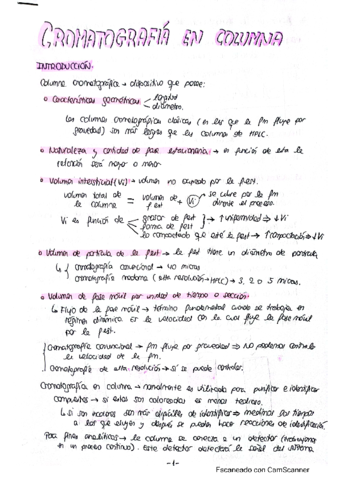 CROMATOGRAFÍA EN COLUMNA
INTRODUCCIÓN.
Columna cromatográfica → dispositivo que posee:
Características geométricas < longitud
diámetro.
Las columnas cromatográficas clásicas (en las que la fm fluye por
gravedad) son más largas que las columnas de HPLC.
Naturaleza y cantidad de fase estacionaria → en función de esta la
relación será mayor o menor.
Volumen intersticial (Vi) → volumen no ocupado por la f.est.
volumen total de la columna = volumen de f est + Vi → se cubre por la fm
durante el proceso.
Vi es función de
grosor de f est
forma de f est
→ ↑ uniformidad → ↓ Vi
lo compactado que esté la f est → ↑ compactación → ↓ Vi
Volumen de partícula de la f.est → la f est tiene un diámetro de partícula,
cromatografía convencional → 40 micras
cromatografía moderna (alta resolución → HPLC) → 3, 2 o 5 micras.
Volumen de fase móvil por unidad de tiempo o sección
↳ Flujo de la fase móvil → término fundamental cuando se trabaja en
régimen dinámico. Es la velocidad con la que fluye la fase móvil
por la f.est.
Cromatografía convencional → fm fluye por gravedad → NO podemos controlar
la velocidad de la fm.
Cromatografía de alta resolución → sí se puede controlar.
Cromatografía en columna → normalmente es utilizada para purificar e identificar
compuestos → si estos son coloreados es menos tedioso.
↳ si son incoloros son más difíciles de identificar → medimos los tiempos
a los que eluyen y después se pueden hacer reacciones de identificación.
Para fines analíticos → la columna se conecta a un detector (trabajamos
en un proceso continuo). Este detector detectará la señal del sistema
-1-
Escaneado con CamScanner